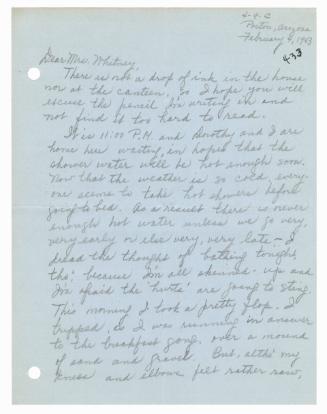 4-4-C
Poston, Arizona
February 4, 1943
433
Dear Mrs. Whitney,
There is not a drop of ink in the house
nor at the canteen, so I hope you will
excuse the pencil I'm writing in and
not find it too hard to read.
It is 11:00 P.M. and Dorothy and I are
home here waiting, in hopes that the
shower water will be hot enough soon.
Now that the weather is so cold every-
one seems to take hot showers before
going to bed. As a result there is never
enough hot water unless we go very,
very early or else very, very late – I
dread the thoughts of bathing tonight,
tho', because I'm all skinned-up and
I'm afraid the 'hurts' are going to sting.
This morning I took a pretty flop. I
tripped, as I was running in answer
to the breakfast gong, over a mound
of sand and gravel. But, altho' my
knees and elbows felt rather raw,